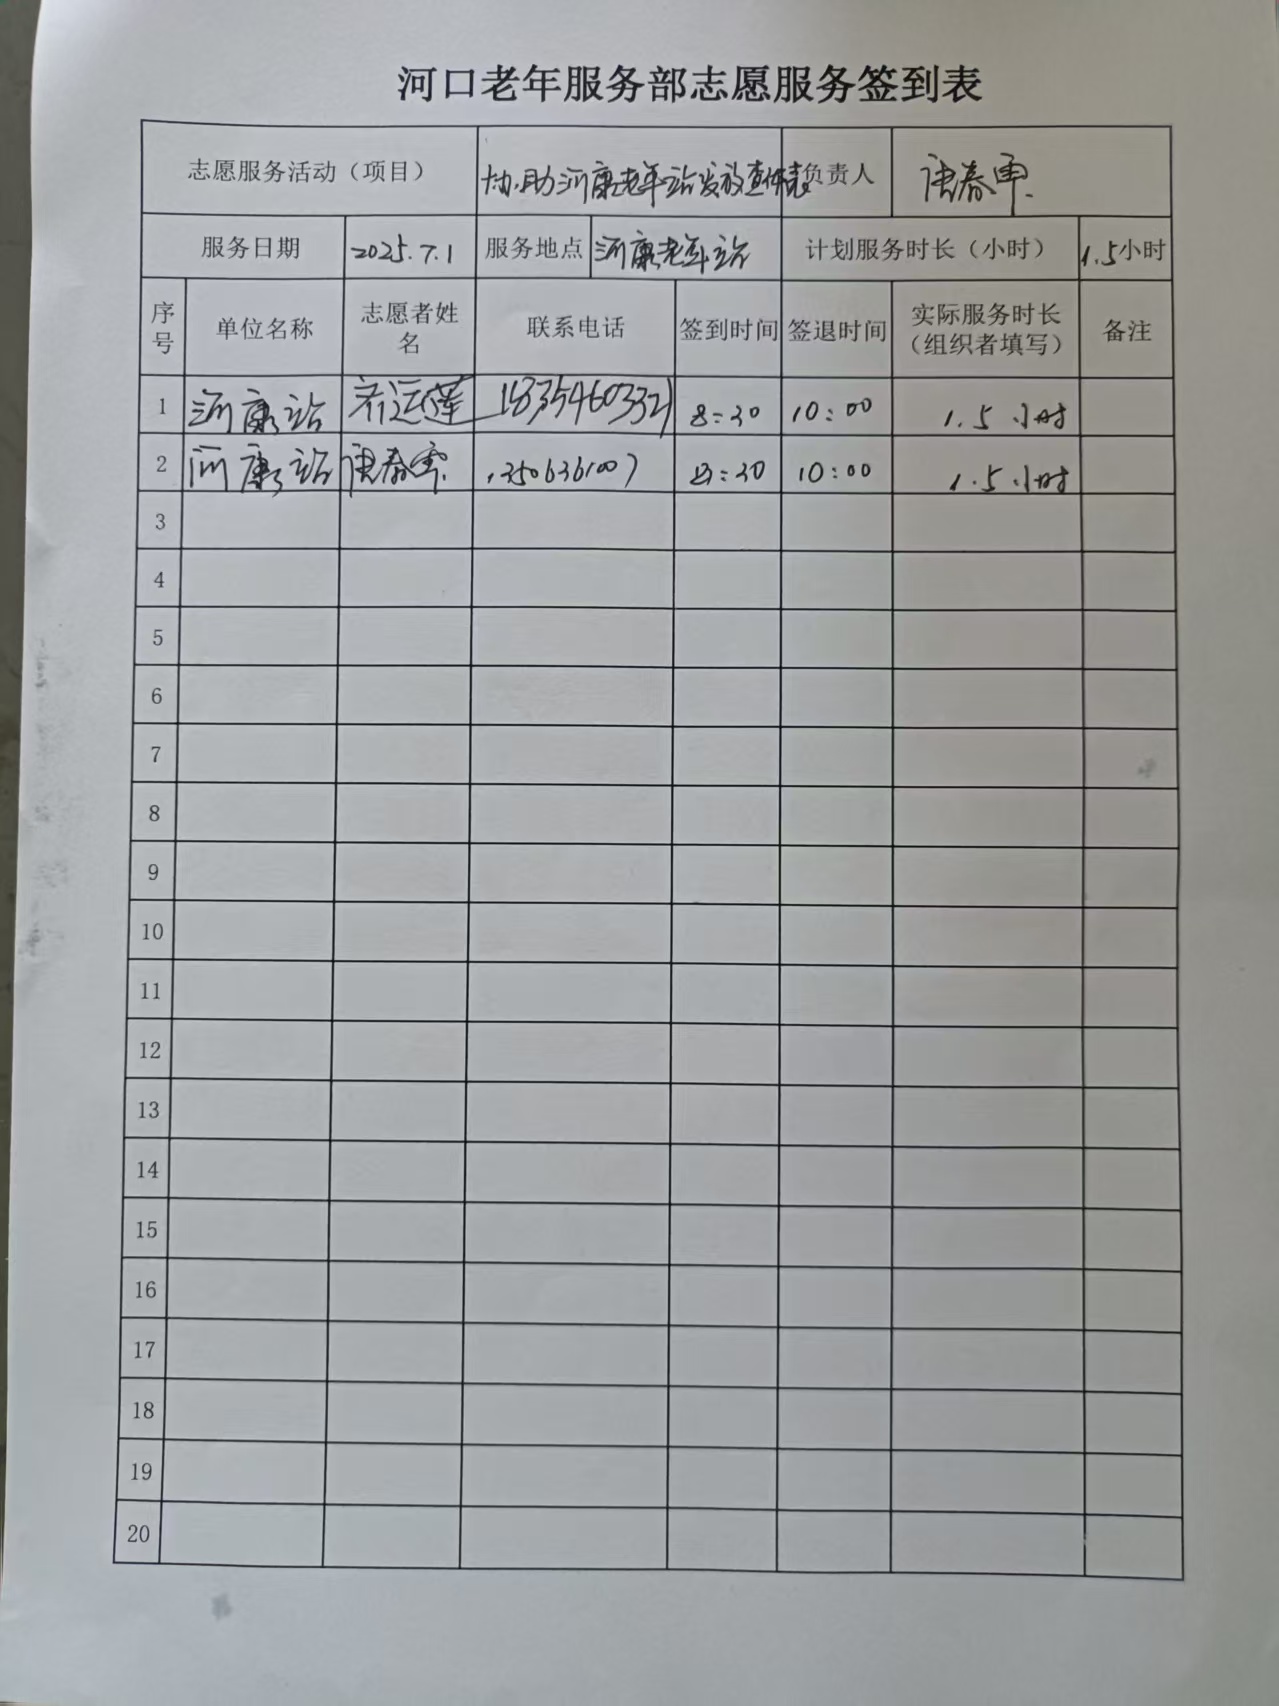 河口老年服务部志愿服务签到表
志愿服务活动（项目） 协助河康老年站发放查体表 负责人 唐春雷
服务日期 2025.7.1 服务地点 河康老年站 计划服务时长（小时） 1.5小时
序号 单位名称 志愿者姓名 联系电话 签到时间 签退时间 实际服务时长（组织者填写） 备注
1 河康站 齐运莲 18354603321 8:30 10:00 1.5小时
2 河康站 唐春雷 13506361007 8:30 10:00 1.5小时
3
4
5
6
7
8
9
10
11
12
13
14
15
16
17
18
19
20